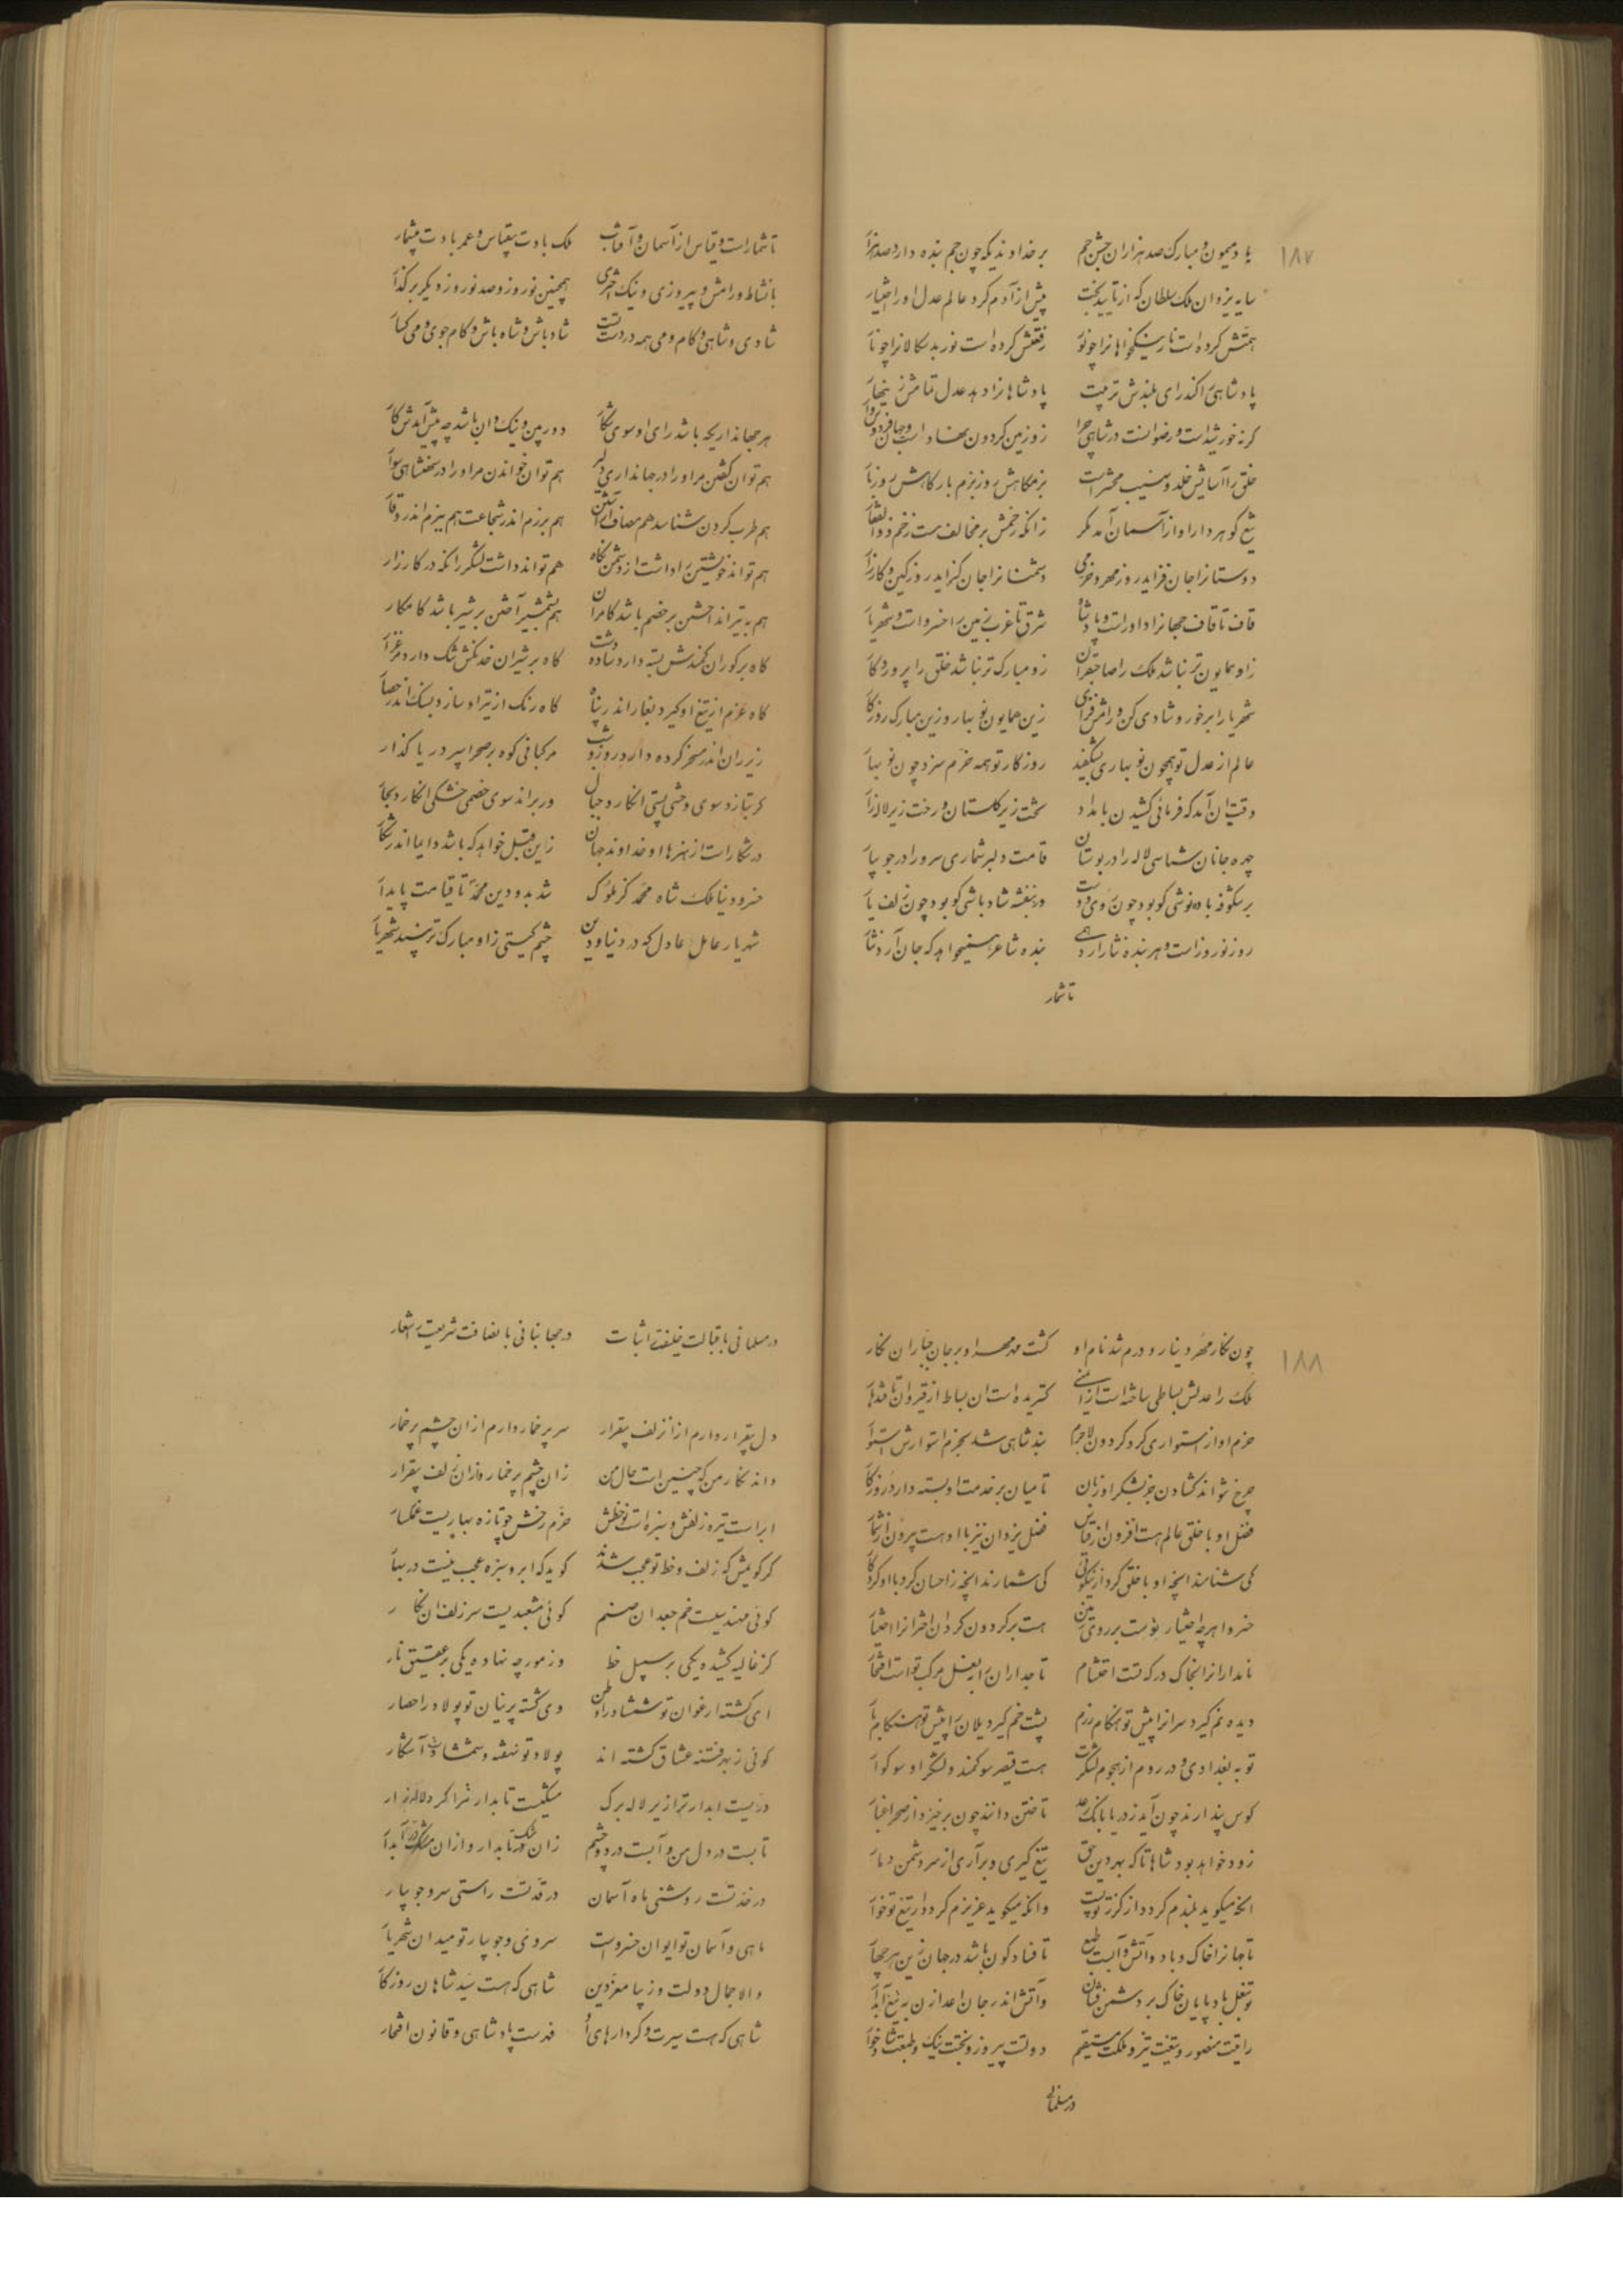 ۱۸۷
باد میمون و مبارک صد هزاران جشن جم بر خداوندیکه چون جم بنده دارد صد هزار
سایه یزدان ملک سلطان که از تایید بخت پیش از آدم کرد عالم عدل او را اختیار
همتش کرده است نار نیکخواهانرا چو نور رفعتش کرده است نور بدسکالانرا چو نار
پادشاهی اکند رای بلندش تربیت پادشاهانرا دهد عدل تمامش زینهار
کرنه خورشید است و رضوانست در شاهی چرا زو زمین کردون نهاد است و جهان فردوس‌وار
خلق را آسایش خلد و نهیب محشر است بزمکاهش روز بزم بارکاهش روز بار
تیغ کوهر دار او از آسمان آمد مکر زانکه زخمش بر مخالف هست زخم ذوالفقار
دوستانرا جان فزاید روز مهر و خرمی دشمنانرا جان کزاید روز کین و کارزار
قاف تا قاف جهانرا داور است و پادشاه شرق تا غرب زمین را خسرو است و شهریار
زو همایون تر نباشد ملک را صاحبقران زو مبارک تر نباشد خلق را پروردکار
شهریارا برخور و شادی کن و رامش فزای زین همایون نوبهار و زین مبارک روزکار
عالم از عدل تو همچون نوبهاری بشکفید روزکار تو همه خرم سزد چون نوبهار
وقت آن آمد که فرمائی کشیدن بامداد تخت زیر کلستان و رخت زیر لاله‌زار
چهره جانان شناسی لاله را در بوستان قامت دلبر شماری سرو را در جویبار
بر شکوفه باده نوشی کو بود چون روی دوست در بنفشه شاد باشی کو بود چون زلف یار
روز نوروز است و هر بنده نثار آرد همی بنده شاعر همیخواهد که جان آرد نثار
تا شمار
تا شمار است و قیاس از آسمان و آفتاب ملک بادت بیقیاس و عمر بادت بیشمار
با نشاط و رامش و پیروزی و نیک اختری همچنین نوروز و صد نوروز دیکر بر کذار
شادی و شاهی و کام و می همه در دست تست شاد باش و شاه باش و کام جوی و می کسار
هر جهانداریکه باشد رای او سوی شکار دوربین و نیکدان باشد چه پیش آیدش کار
هم توان کفتن مر او را در جهانداری دلیر هم توان خواندن مر او را در شهنشاهی سوار
هم طرب کردن شناسد هم مصاف آراستن هم برزم اندر شجاعت هم ببزم اندر وقار
هم تواند خویشتن را داشت از دشمن نکاه هم تواند داشت لشکر را نکه در کارزار
هم به تیر انداختن بر خصم باشد کامران هم بشمشیر آختن بر شیر باشد کامکار
کاه بر کوران کمندش بسته دارد ساده دشت کاه بر شیران خدنکش تنک دارد مرغزار
کاه غرم از تیغ او کیرد بغار اندر پناه کاه رنک از تیر او سازد بسنک اندر حصار
زیر ران اندر مسخر کرده دارد روز و شب مرکبانی کوه بر صحرا سپر دریا کذار
کر بتازد سوی وحشی پستی انکارد جبال ور براند سوی خصمی خشکی انکارد بحار
در شکار است از هنرها او خداوند جهان زاین قبل خواهد که باشد دایما اندر شکار
خسرو دنیا ملک شاه محمد کز ملوک شد بدو دین محمد تا قیامت پایدار
شهریار عامل عادل که در دنیا و دین چشم کیتی زاو مبارک تر نبیند شهریار
۱۸۸
چون نکار مهر دینار و درم شد نام او کشت مهر او بر جان جباران نکار
ملک را عدلش بساطی ساخته است از ایمنی کستریده است آن بساط از قیروان تا قندهار
حزم او از استواری کرد کردون لاجرم بند شاهی شد بحزم استوارش استوار
چرخ نتواند کشادن جز بشکر او زبان تا میان بر خدمت او بسته دارد روزکار
فضل او با خلق عالم هست افزون از قیاس فضل یزدان نیز با او هست بیرون از شمار
کی شناسند آنچه او با خلق کرد از نیکوئی کی شمارند آنچه ز احسان کرد با او کردکار
خسروا هر چه اختیار تو است بر روی زمین هست بر کردون کردان اخترانرا اختیار
نامدارانرا بخاک درکه تست احتشام تاجداران را بنعل مرکب تو است افتخار
دیده نم کیرد سرانرا پیش تو هنکام رزم پشت خم کیرد یلان را پیش تو هنکام بار
تو به بغدادی و در روم از هجوم لشکرت هست قیصر سوکمند و لشکر او سوکوار
کوس پندارند چون آید ز دریا بانک رعد تاختن دانند چون برخیزد از صحرا غبار
زود خواهد بود شاها تا که بهر دین حق تیغ کیری و برآری از سر دشمن دمار
آنکه میکوید بلندم کردد از کرز تو پست وانکه میکوید عزیزم کردد از تیغ تو خوار
تا جهانرا خاک و باد و آتش و آبست طبع تا فساد و کون باشد در جهان زین هر چهار
تو بنعل باد پایان خاک بر دشمن فشان و آتش اندر جان اعدا زن به تیغ آبدار
رایتت منصور و تیغت تیز و ملکت مستقیم دولت پیروز و بختت نیک و طبعت شادخوار
در مسلمانی
در مسلمانی باقبالت خلیفت را ثبات در جهانبانی بانصافت شریعت را شعار
دل بیقرار دارم از آن زلف بیقرار سر پر خمار دارم از آن چشم پر خمار
داند نکار من که چنین است حال من زان چشم پر خمار و از آن زلف بیقرار
ابر است تیره زلفش و سبزه است نو خطش خرم رخش چو تازه بهاریست غمکسار
کر کویمش که زلف و خط تو عجب شدند کوید که ابر و سبزه عجب نیست در بهار
کوئی مهندسیست خم جعد آن صنم کوئی مشعبدیست سر زلف آن نکار
کز غالیه کشیده یکی بر سهیل خط وز مورچه نهاده یکی بر عقیق نار
ای کشته ارغوان تو شمشاد را وطن وی کشته پرنیان تو پولاد را حصار
کوئی ز بهر فتنه عشاق کشته‌اند پولاد تو نهفته و شمشاد آشکار
دریست آبدار ترا زیر لاله برک مشکیست تابدار ترا کرد لاله‌زار
تابست در دل من و آبست در دو چشم زان مشک تابدار و از آن در آبدار
در خد تست روشنی ماه آسمان در قد تست راستی سرو جویبار
ماهی و آسمان تو ایوان خسرو است سروی و جویبار تو میدان شهریار
والا جمال دولت و زیبا معز دین شاهی که هست سید شاهان روزکار
شاهی که هست سیرت و کردارهای او فهرست پادشاهی و قانون افتخار